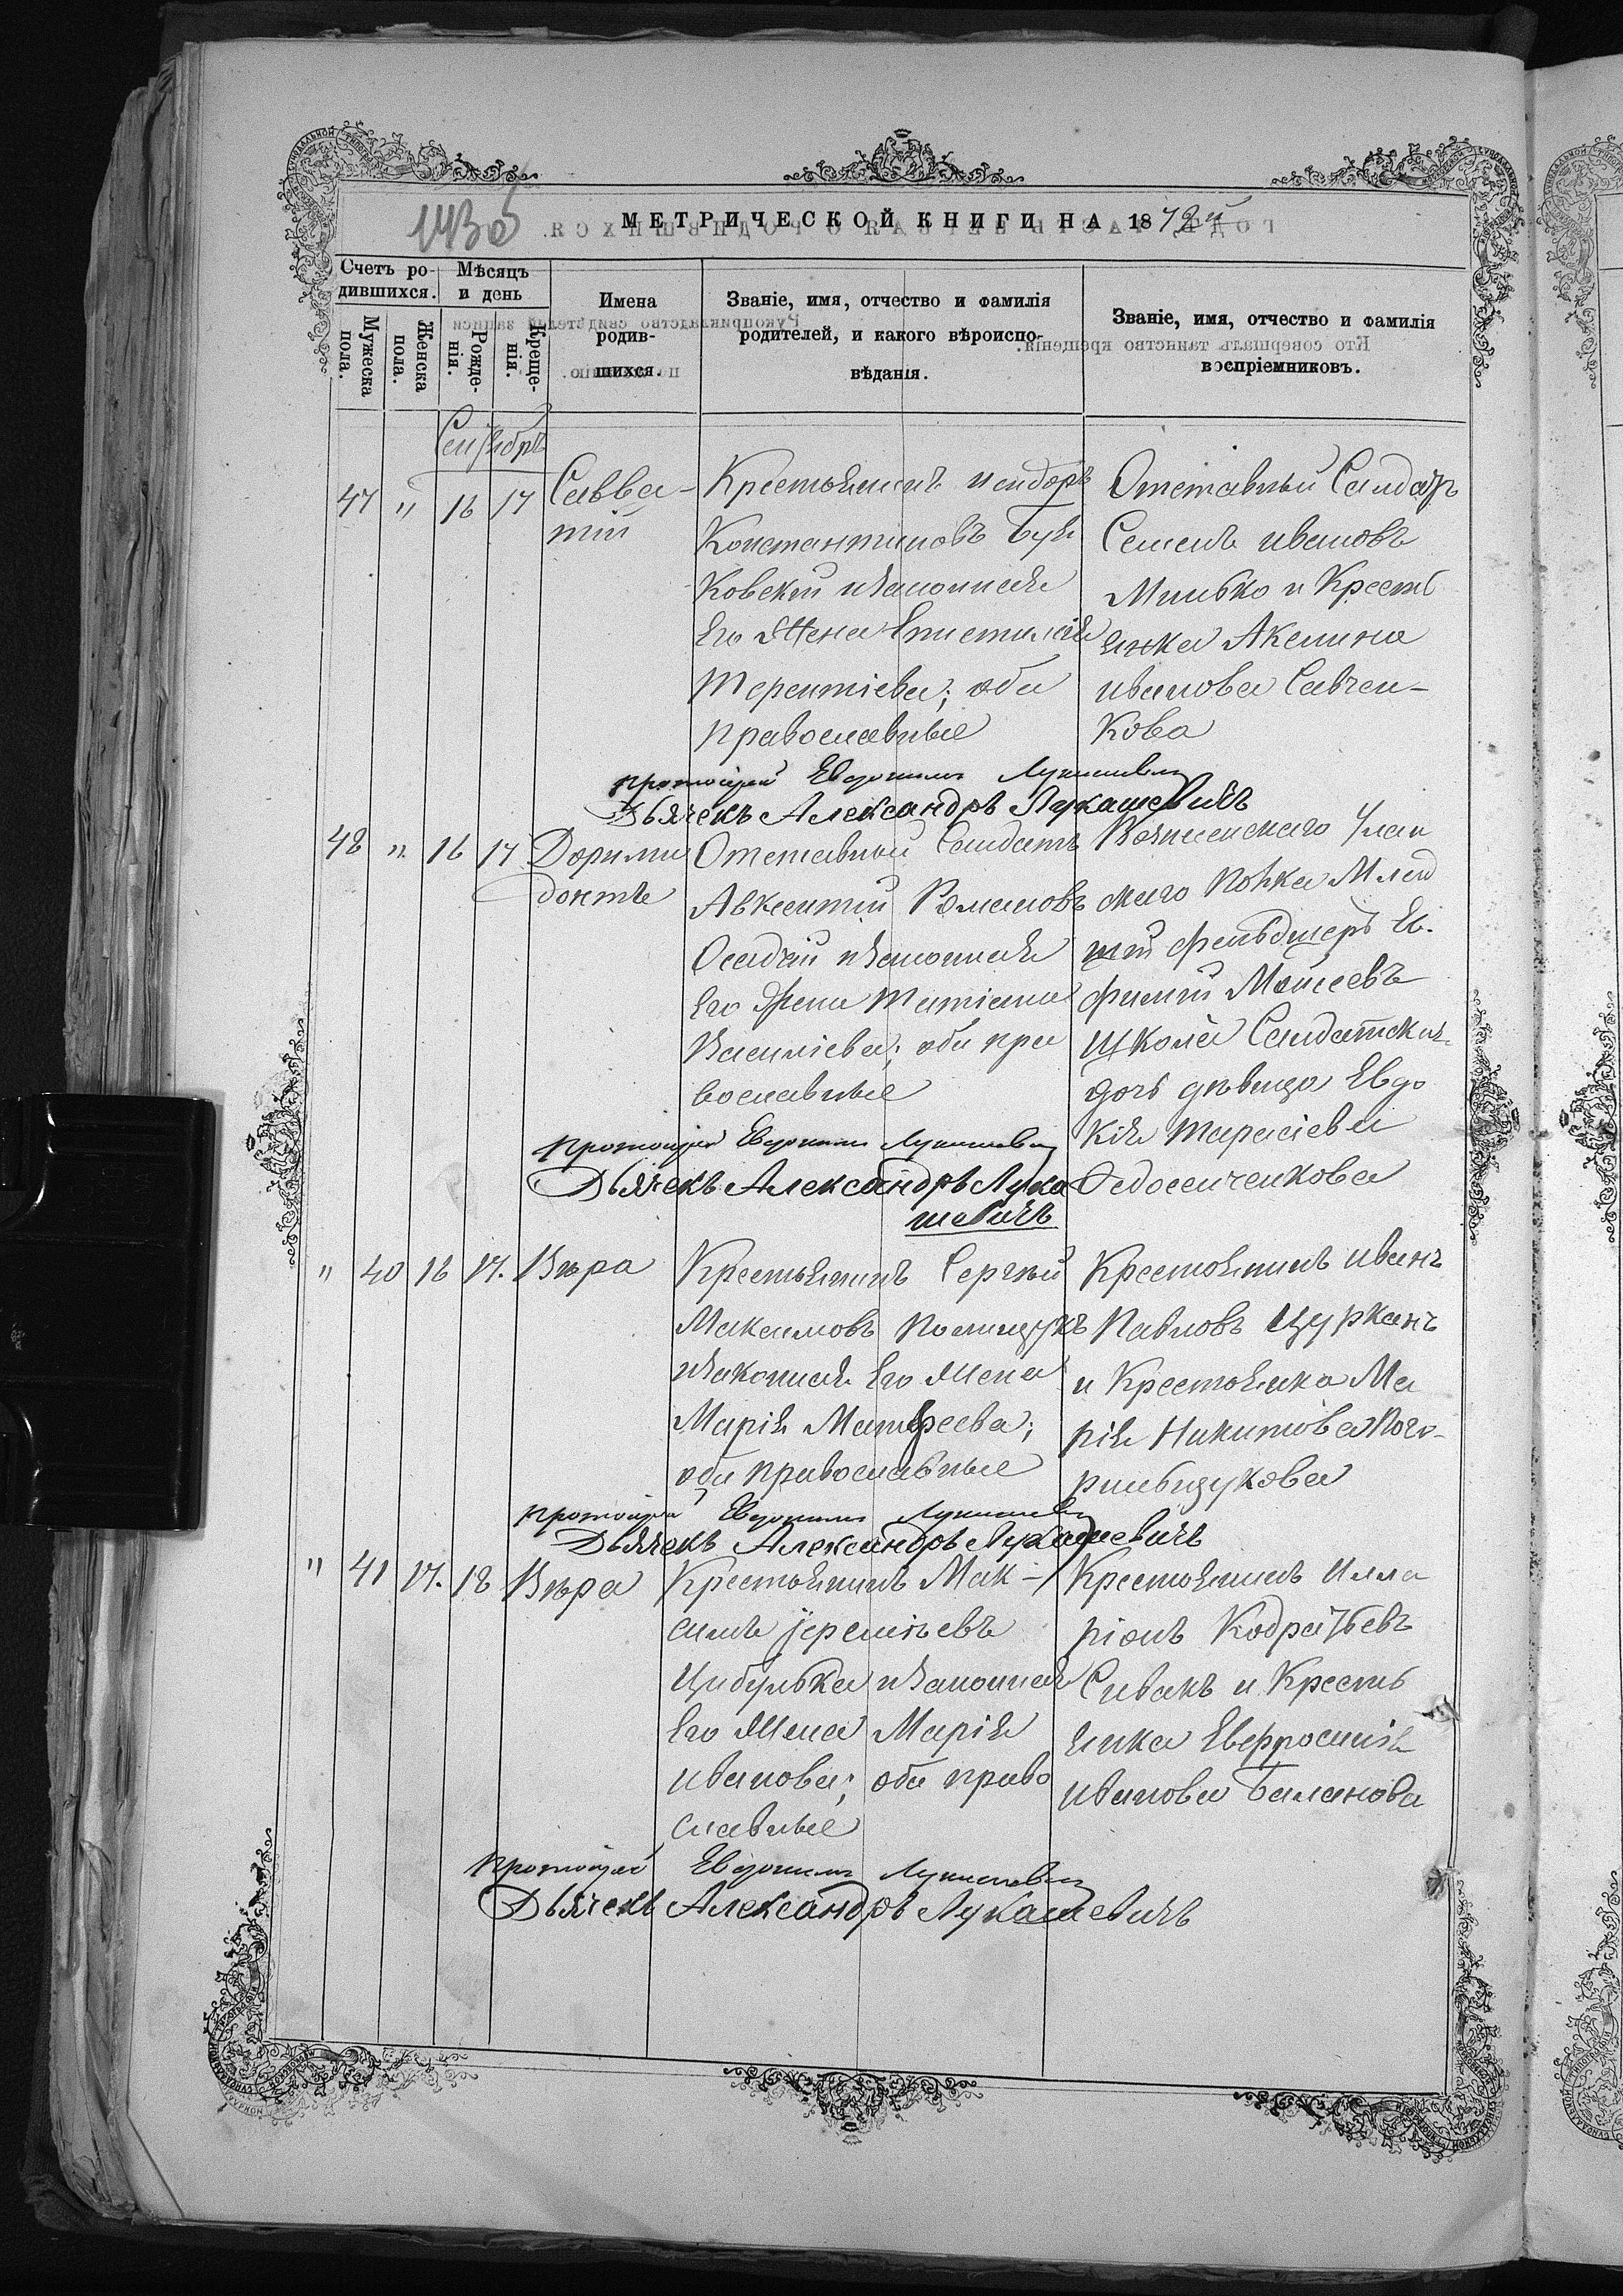 143об
МЕТРИЧЕСКОЙ КНИГИ НА 1872й
Счетъ ро-
дившихся.
Мѣсяцъ
и день
Имена
родив-
шихся.
Званіе, имя, отчество и фамилія
родителей, и какого вѣроиспо-
вѣданія.
Званіе, имя, отчество и фамилія
воспріемниковъ.
Мужеска пола.
Женска пола.
Рожде-нія.
Креще-нія.
Сентябрь
47 " 16 17 Савва-
тій
Крестьянинъ исидоръ
Константиновъ Буя
Ковскій изаконная
Его Жена Епистимія
Терентіева; оба
православные
Отставный Салдатъ
Семенъ ивановъ
Минько и Кресть
янка Акелина
иванова Савчен-
кова
протоіерей Евдокимъ Лукашевичъ
Дьячекъ Александръ Лукашевичъ
48 " 16 17 Дорими
донтъ
Отставный Салдатъ
Авксентій Романовъ
Осадчій изаконная
Его Жена Татіана
Василіева; оба пра
вославные
Вознесенскаго Улан
скаго Полка Млад
шій фельдшеръ Ев.
фимій Моисеевъ
Школа Салдатская
дочь дѣвица Евдо
кія Тарасіева
Федосенчикова
протоіерей Евдокимъ Лукашевичъ
Дьячекъ Александръ Лука
шевичъ
" 40 16 17. Вѣра
Крестьянинъ Сергѣй
Максимовъ Полищукъ
изаконная Его Жена
Марія Матфеева;
оба православные
Крестьянинъ иванъ
Павловъ Цурканъ
и Крестьянка Ма
рія Никитова Пого-
рильцукова
протоіерей Евдокимъ Лукашевичъ
Дьячекъ Александръ Лукашевичъ
" 41 17. 18 Вѣра
Крестьянинъ Мак-
симъ Іереміевъ
Цибулька изаконная
Его Жена Марія
иванова; оба право
славные
Крестьянинъ Илла
ріонъ Кодратьевъ
Сивакъ и Кресть
янка Евфросинія
иванова Баланова
протоіерей Евдокимъ Лукашевичъ
Дьячекъ Александръ Лукашевичъ